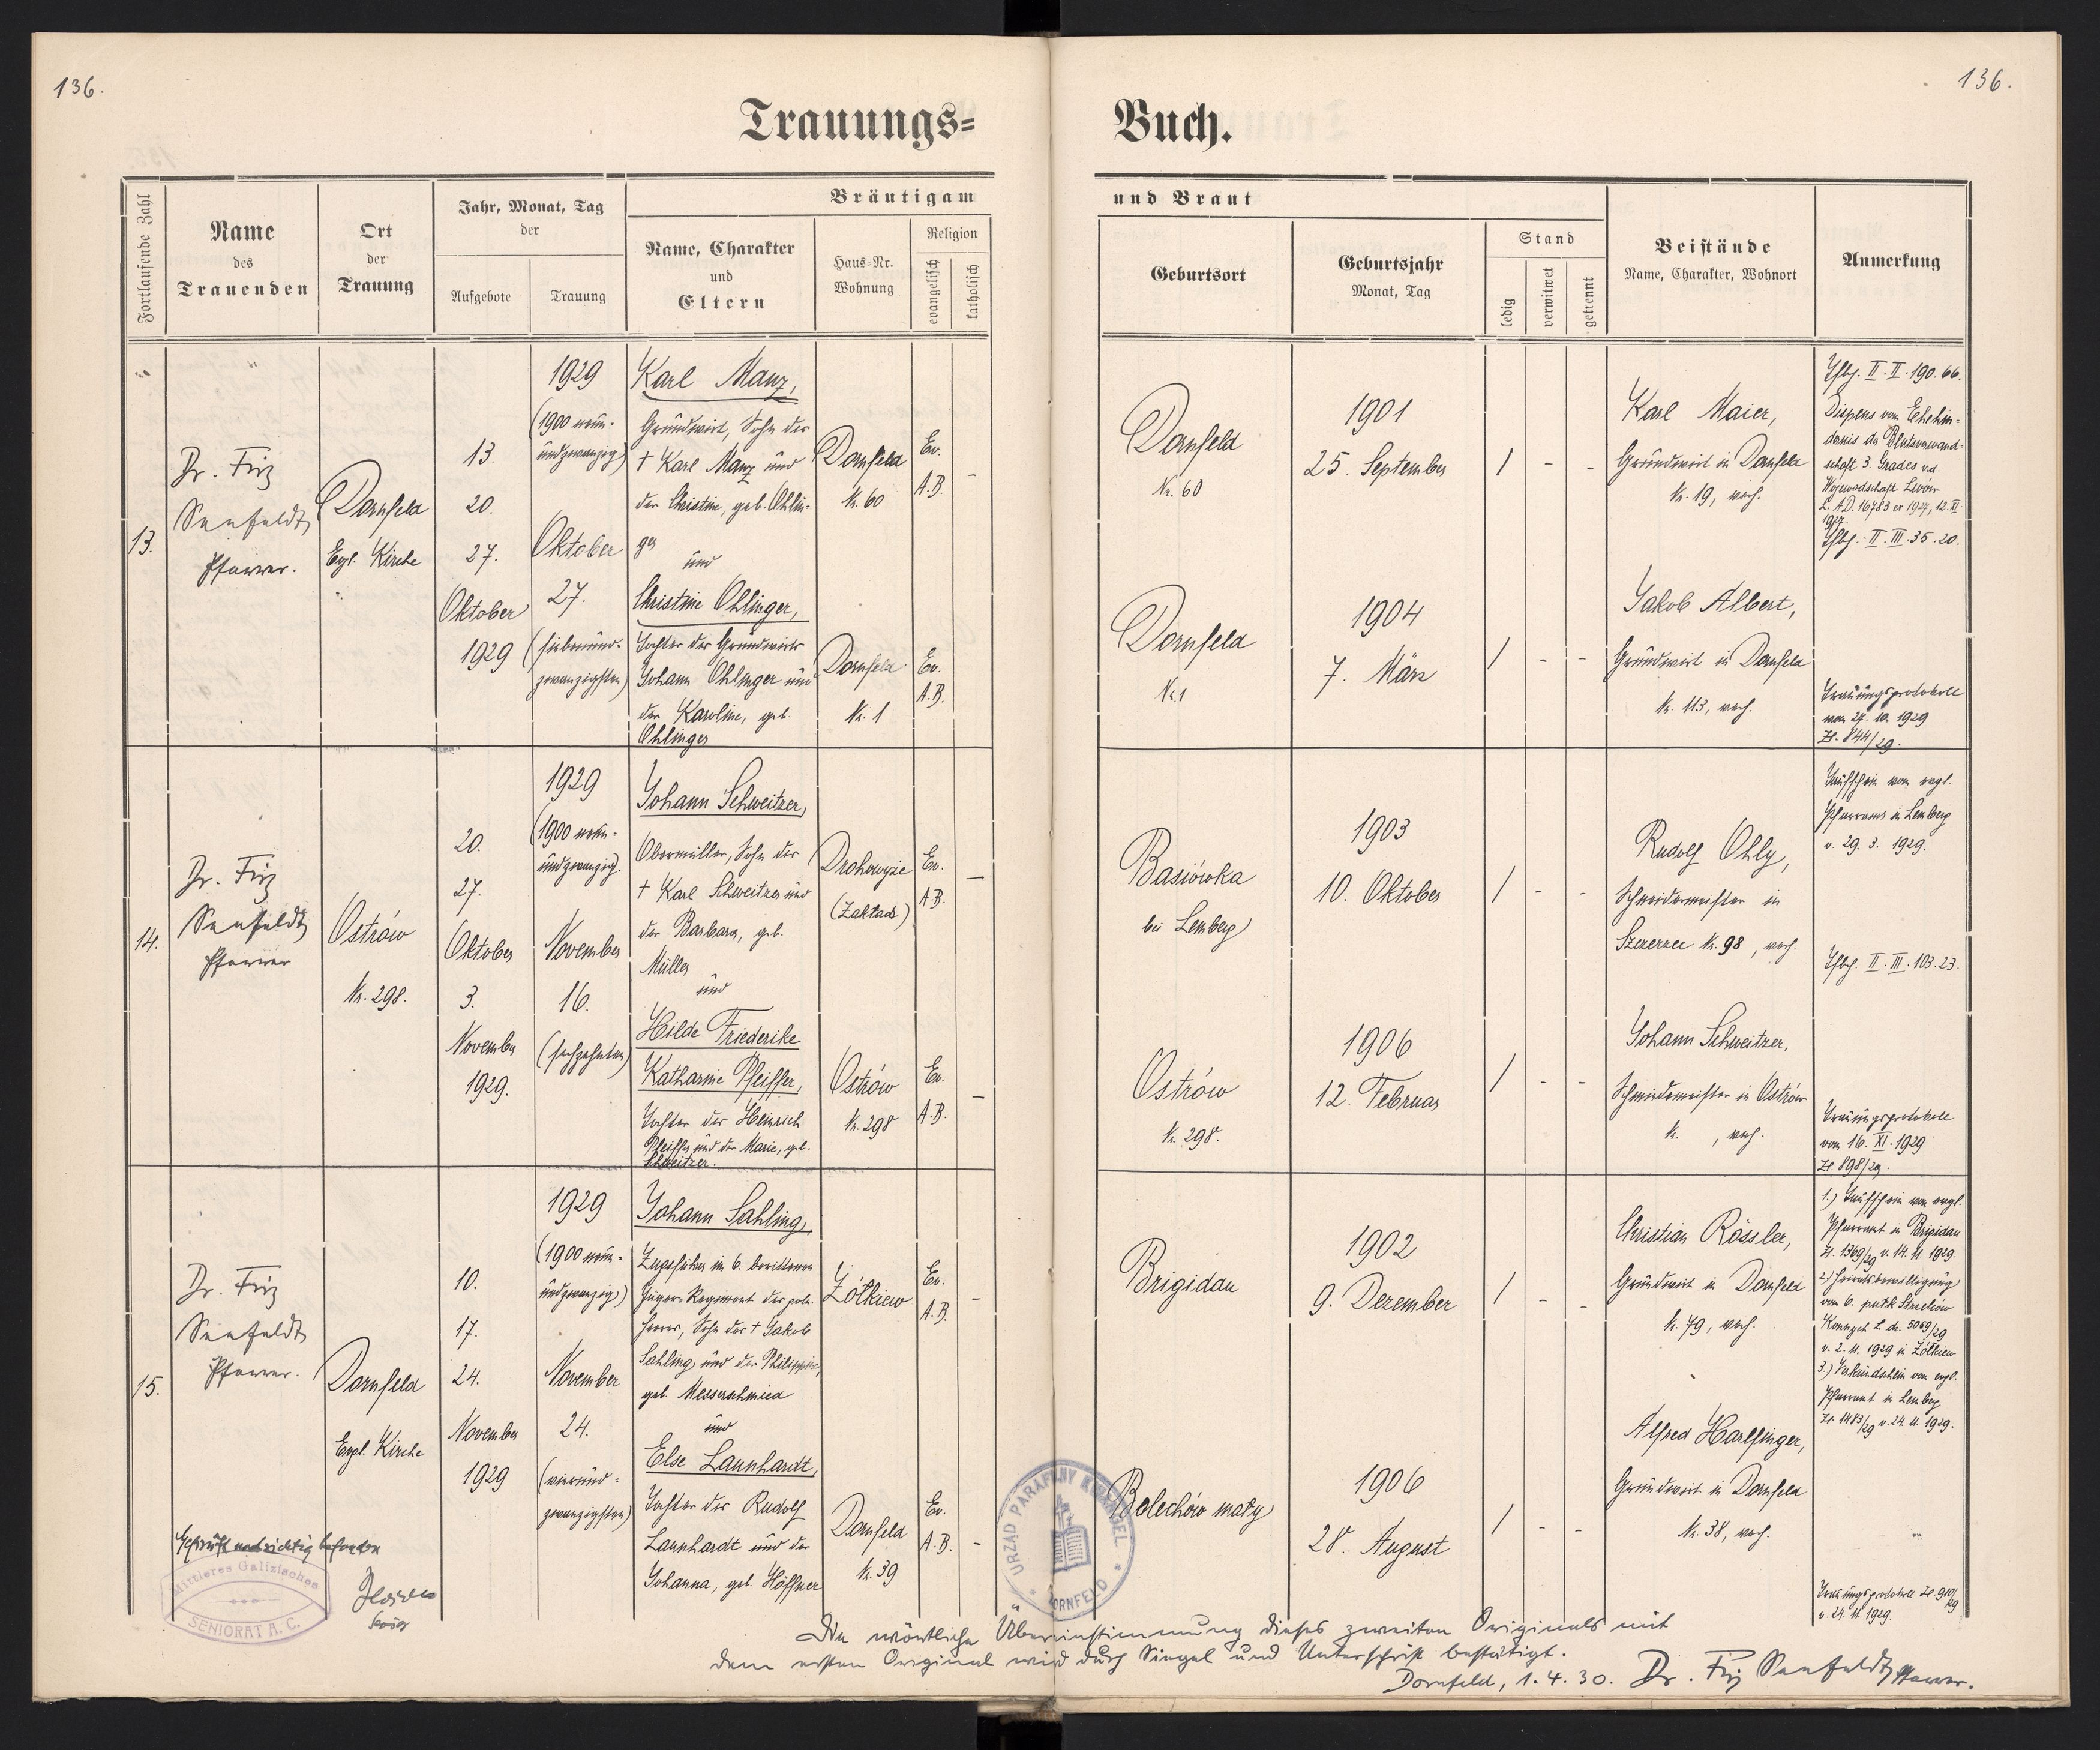 136.
136.
Trauungs=
Buch.
Fortlaufende Zahl
Name
des
Trauenden
Ort
der
Trauung
Jahr, Monat, Tag
der
Aufgebote
Trauung
Bräutigam
Name, Charakter
und
Eltern
Haus=Nr.
Wohnung
Religion
evangelisch
katholisch
und Braut
Geburtsort
Geburtsjahr
Monat, Tag
Stand
ledig
verwitwet
getrennt
Beistände
Name, Charakter, Wohnort
Anmerkung
13.
Dr. Friz
Seefeldt
Pfarrer.
Dornfeld
Evgl. Kirche
13.
20.
27.
Oktober
1929
1929
(1900 neun-
undzwanzig)
Oktober
27.
(siebenund-
zwanzigsten)
Karl Manz,
Grundwirt, Sohn des
† Karl Manz und
der Christine, geb. Ohlin-
ger
und
Christine Ohlinger,
Tochter des Grundwirts
Johann Ohlinger und
der Karoline, geb.
Ohlinger
Dornfeld
Nr. 60
Dornfeld
Nr. 1
Ev.
A.B.
-
Ev.
A.B.
Dornfeld
Nr. 60
Dornfeld
Nr. 1
1901
25. September
1904
7. März
/ - -
/ - -
Karl Maier,
Grundwirt in Dornfeld
Nr. 19, ev.
Jakob Albert,
Grundwirt in Dornfeld
Nr. 113, ev.
II. II. 190. 66.
Dispens vom Ehehin-
dernis der Blutsverwand-
schaft 3. Grades v.d.
Wojewodschaft Lwów
L. A.D. 16783 ex 1927, 12. XI
1927.
II. III. 35. 20.
Trauungsprotokoll
vom 27. 10. 1929
Zl. 844/29.
14.
Dr. Friz
Seefeldt
Pfarrer
Ostrów
Nr. 298.
20.
27.
Oktober
3.
November
1929.
1929
(1900 neun-
undzwanzig)
November
16.
(sechzehnten)
Johann Schweitzer,
Obermüller, Sohn des
† Karl Schweitzer und
der Barbara, geb.
Müller
und
Hilde Friederike
Katharine Pfeiffer,
Tochter des Heinrich
Pfeiffer und der Marie, geb.
Schweitzer.
Drohowyże
(Zakład)
Ostrów
Nr. 298
Ev.
A.B.
-
Ev.
A.B.
-
Basiówka
bei Lemberg
Ostrów
Nr. 298.
1903
10. Oktober
1906
12. Februar
/ - -
/ - -
Rudolf Ohly,
Schneidermeister in
Szczerzec Nr. 98, ev.
Johann Schweitzer,
Schmiedemeister in Ostrów
Nr. , ev.
Taufschein vom evgl.
Pfarramt in Lemberg
v. 29. 3. 1929.
II. III. 103. 23.
Trauungsprotokoll
vom 16. XI. 1929
Zl. 898/29.
15.
Dr. Friz
Seefeldt
Pfarrer.
Dornfeld
Evgl. Kirche
10.
17.
24.
November
1929
1929
(1900 neun-
undzwanzig)
November
24.
(vierund-
zwanzigsten)
Johann Sahling,
Zugsführer im 6. berittenen
Jäger-Regiment der poln.
Heeres, Sohn des † Jakob
Sahling und der Philippine,
geb. Messerschmied
und
Else Launhardt,
Tochter des Rudolf
Launhardt und der
Johanna, geb. Höffner
Żółkiew
Dornfeld
Nr. 39
Ev.
A.B.
-
Ev.
A.B.
-
Brigidau
Bolechów mały
1902
9. Dezember
1906
28. August
/ - -
/ - -
Christian Rössler,
Grundwirt in Dornfeld
Nr. 79, ev.
Alfred Harlfinger,
Grundwirt in Dornfeld
Nr. 38, ev.
1.) Taufschein vom evgl.
Pfarramt in Brigidau
Zl. 1369/29 v. 14. 11. 1929.
2.) Heiratsbewilligung
vom 6. pułk Strzelców
Konnych L. dz. 5069/29
v. 2. 11. 1929 in Żółkiew
3.) Verkündschein vom evgl.
Pfarramt in Lemberg
Zl. 1483/29 v. 24. 11. 1929.
Trauungsprotokoll Zl. 910/29
v. 24. 11. 1929.
Geprüft und richtig befunden
Mittleres Galizisches
SENIORAT A. C.
Senior
URZĄD PARAFJALNY EWANGEL.
DORNFELD
Die wörtliche Übereinstimmung dieses zweiten Originals mit
dem ersten Original wird durch Siegel und Unterschrift bestätigt.
Dornfeld, 1. 4. 30. Dr. Friz Seefeldt Pfarrer.